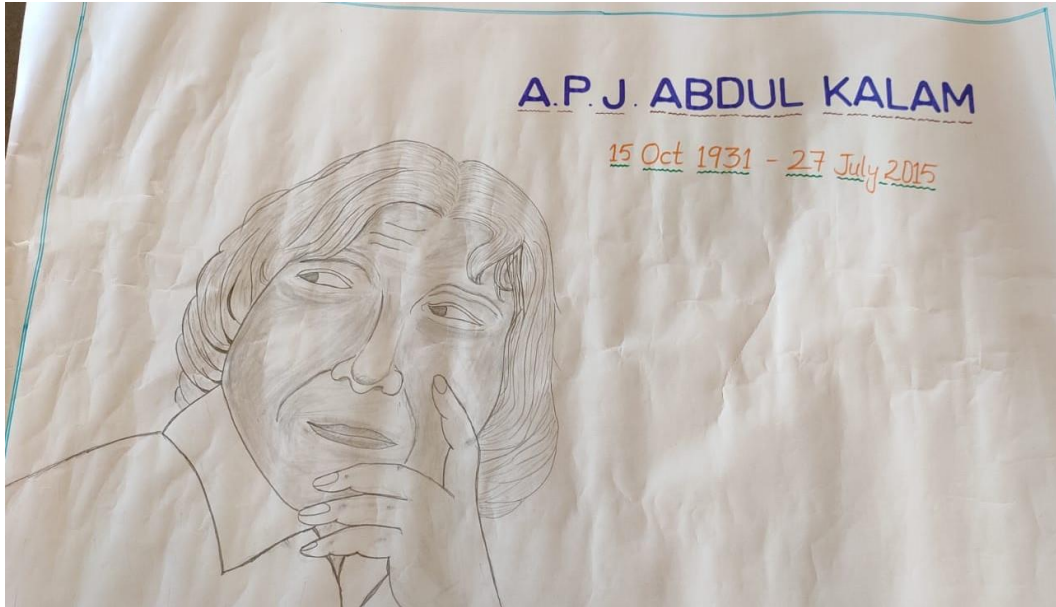 A.P.J. ABDUL KALAM
15 Oct 1931 - 27 July 2015